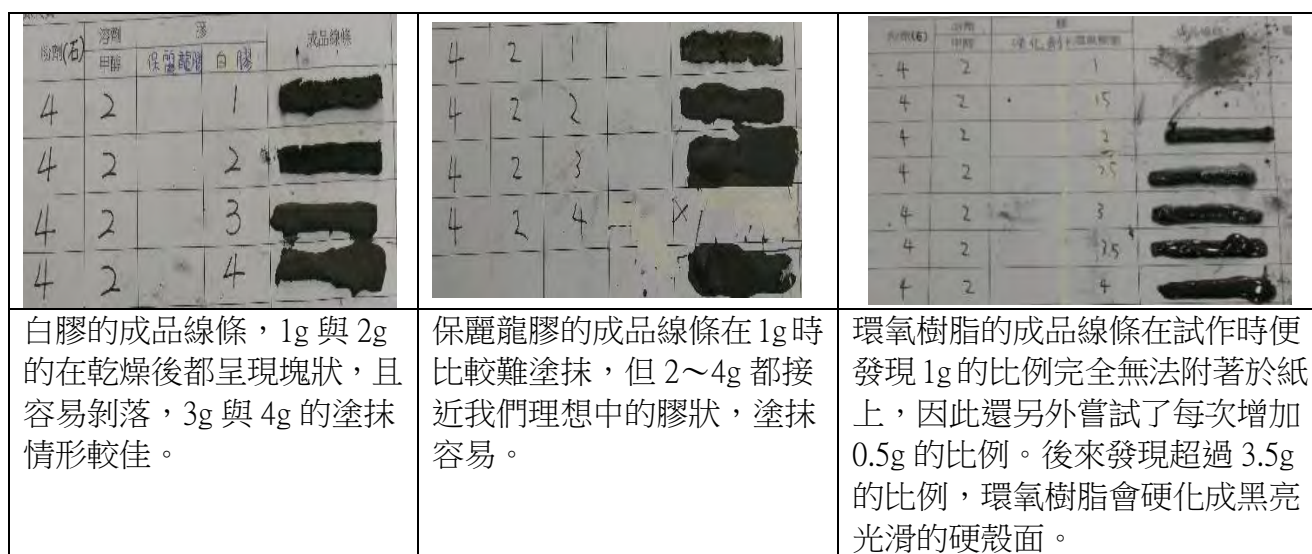 粉劑(石) 溶劑 膠 成品線條
甲醇 保麗龍膠 白膠
4 2 1
4 2 2
4 2 3
4 2 4
4 2 1
4 2 2
4 2 3
4 2 4 X
粉劑(石) 溶劑 膠 成品線條
甲醇 硬化劑+環氧樹脂
4 2 1
4 2 1.5
4 2 2
4 2 2.5
4 2 3
4 2 3.5
4 2 4
白膠的成品線條,1g 與 2g
的在乾燥後都呈現塊狀,且
容易剝落,3g 與 4g 的塗抹
情形較佳。
保麗龍膠的成品線條在 1g 時
比較難塗抹,但 2~4g 都接
近我們理想中的膠狀,塗抹
容易。
環氧樹脂的成品線條在試作時便
發現 1g 的比例完全無法附著於紙
上,因此還另外嘗試了每次增加
0.5g 的比例。後來發現超過 3.5g
的比例,環氧樹脂會硬化成黑亮
光滑的硬殼面。